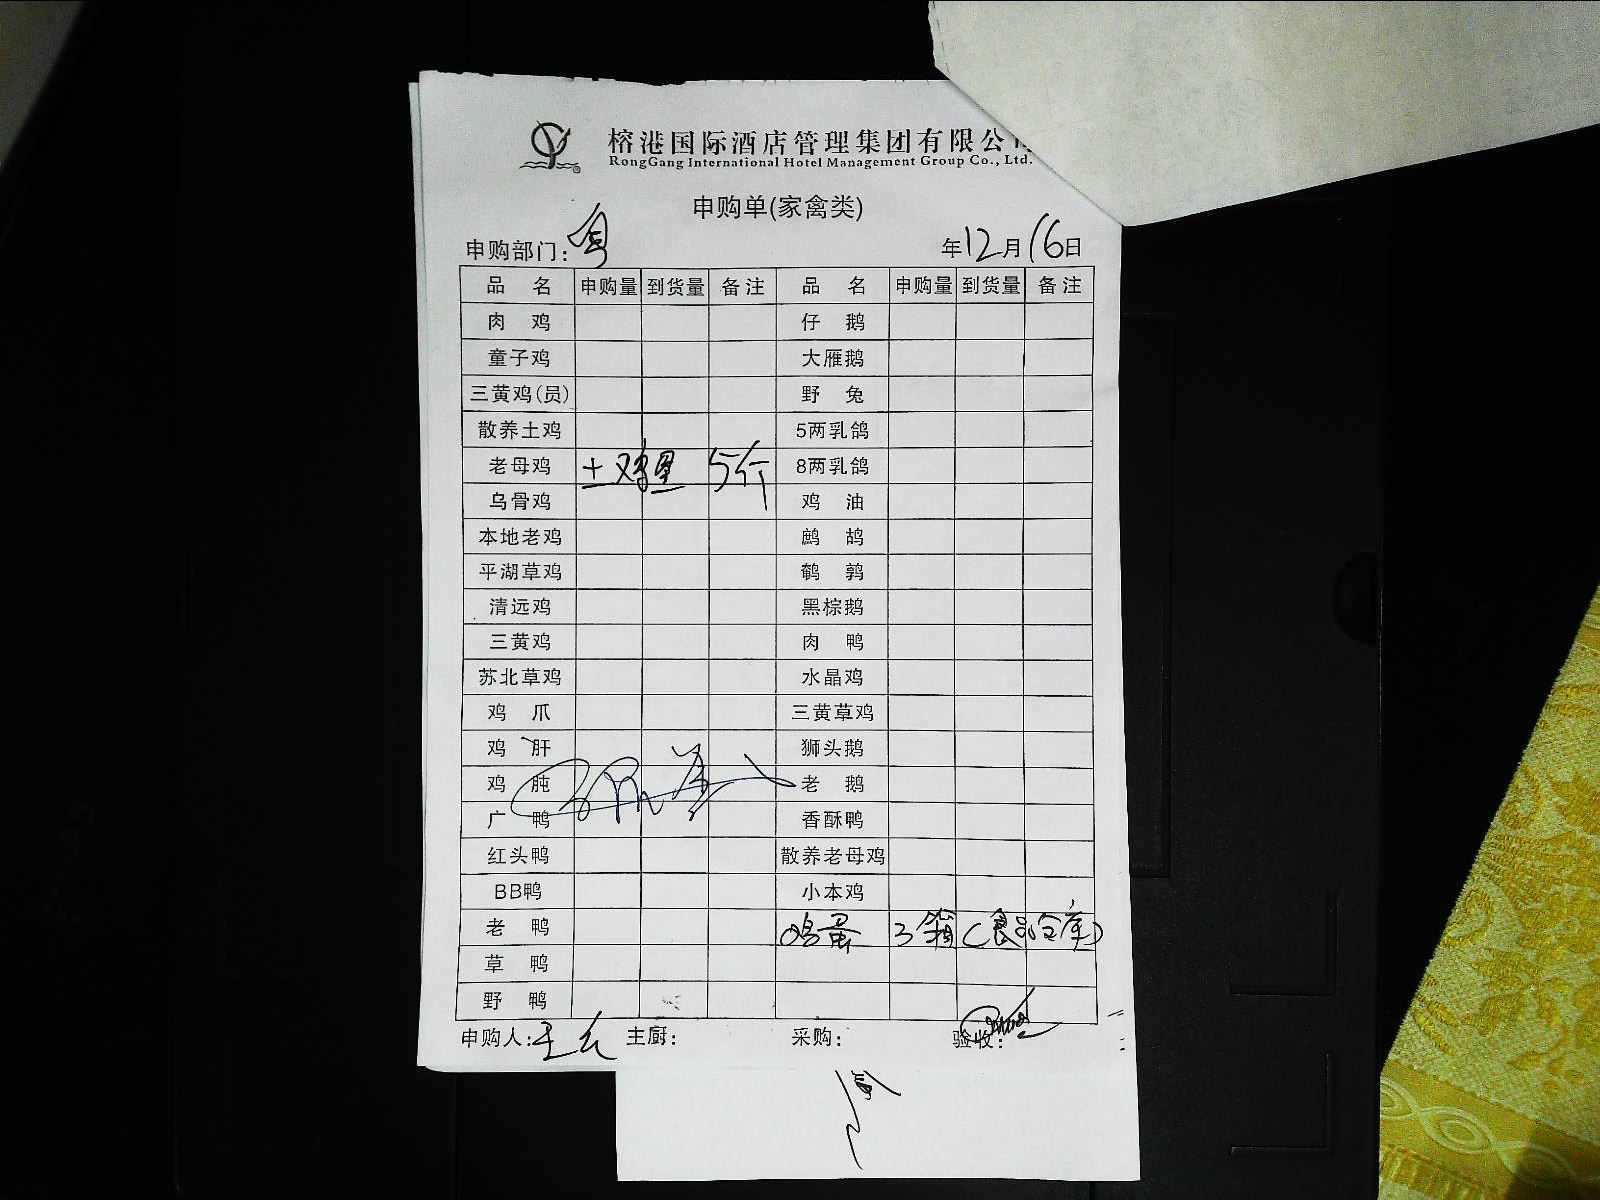 榕港国际酒店管理集团有限公
RongGang International Hotel Management Group Co., Ltd.
申购单(家禽类)
申购部门: 年12月16日
品 名 申购量 到货量 备注 品 名 申购量 到货量 备注
肉 鸡 仔 鹅
童子鸡 大雁鹅
三黄鸡(员) 野 兔
散养土鸡 5两乳鸽
老母鸡 土鸡 5斤 8两乳鸽
乌骨鸡 鸡 油
本地老鸡 鹧 鸪
平湖草鸡 鹌 鹑
清远鸡 黑棕鹅
三黄鸡 肉 鸭
苏北草鸡 水晶鸡
鸡 爪 三黄草鸡
鸡 肝 狮头鹅
鸡 肫 老 鹅
广 鸭 香酥鸭
红头鸭 散养老母鸡
BB鸭 小本鸡
老 鸭 鸡蛋 3箱(食品仓库)
草 鸭
野 鸭
申购人: 主厨: 采购: 验收: